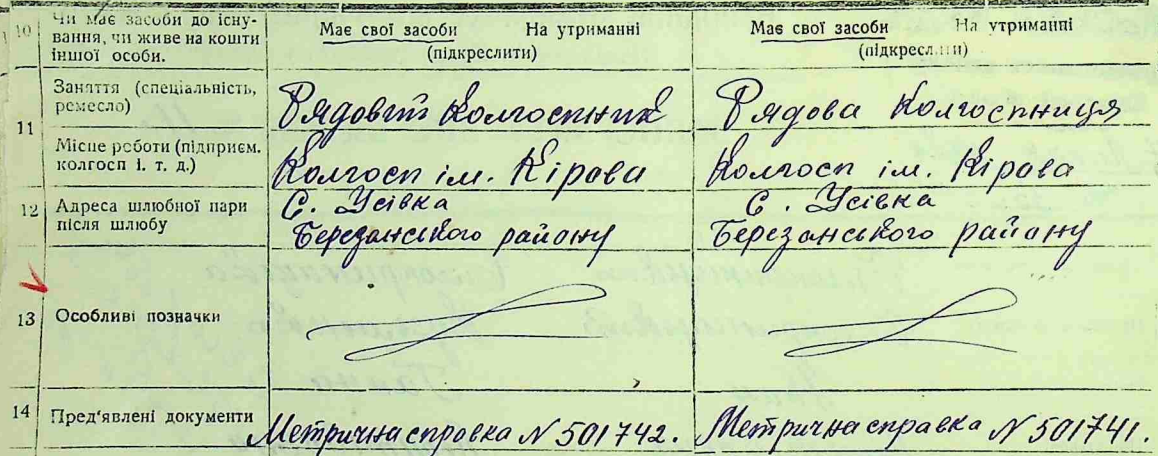 10 Чи має засоби до існу-
вання, чи живе на кошти
іншої особи.
Має свої засоби На утриманні
(підкреслити)
Має свої засоби На утриманні
(підкреслити)
11
Заняття (спеціальність,
ремесло)
Рядовий Колгоспник
Рядова Колгоспниця
Місце роботи (підприєм.
колгосп і. т. д.)
Колгосп ім. Кірова
Колгосп ім. Кірова
12 Адреса шлюбної пари
після шлюбу
С. Усівка
Березанського району
С. Усівка
Березанського району
13 Особливі позначки
14 Пред'явлені документи
Метрична справка N 501742.
Метрична справка N 501741.